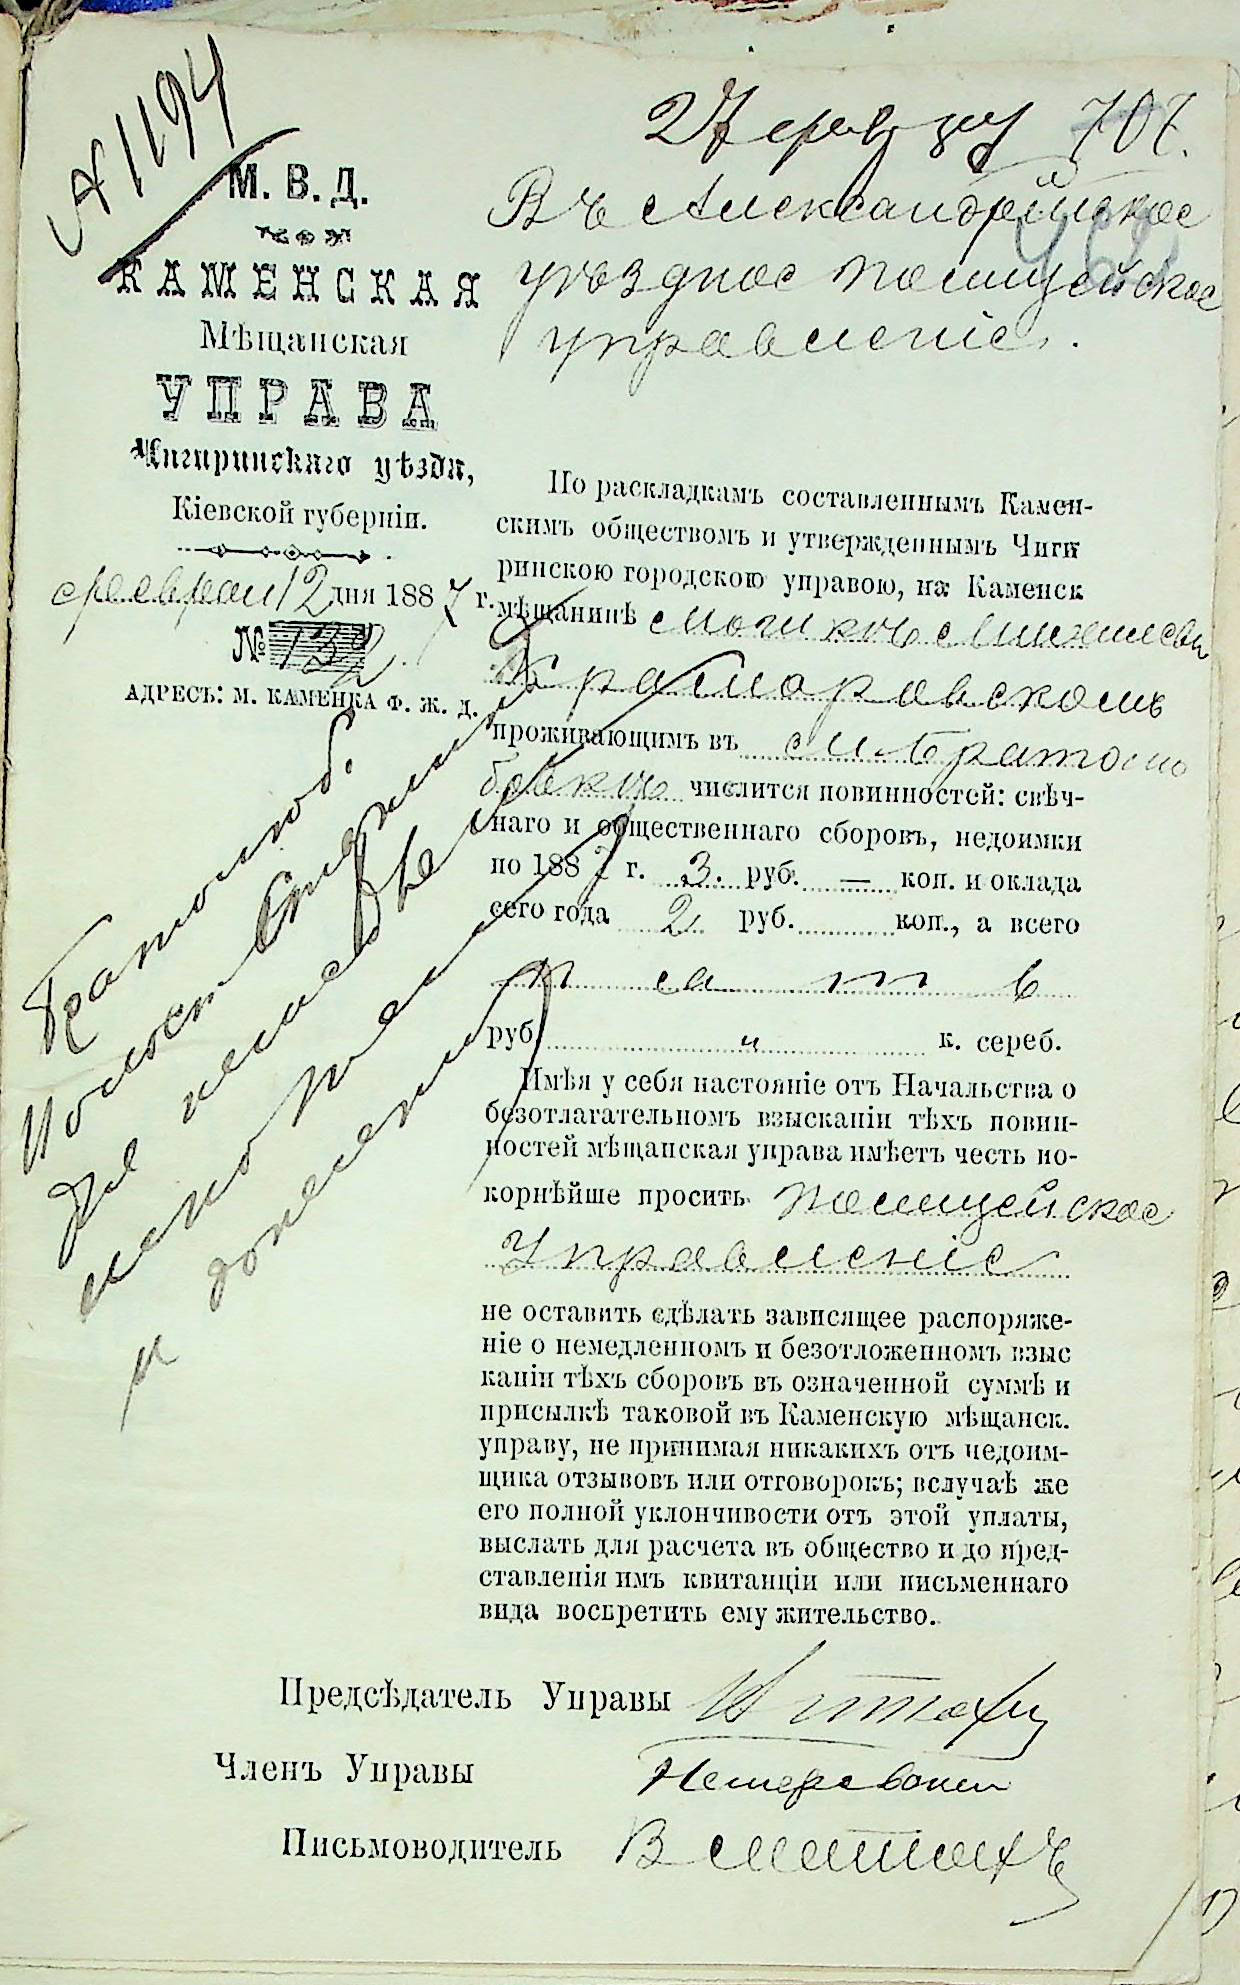 № 1194
707.
М. В. Д.
КАМЕНСКАЯ
Мѣщанская
УПРАВА
Чигиринскаго уѣзда,
Кіевской губерніи.
февраля 12 дня 1887 г.
№ 132
АДРЕСЪ: М. КАМЕНКА Ф. Ж. Д.
Въ Александрійское
уѣздное полицейское
управленіе.
По раскладкамъ составленнымъ Камен-
скимъ обществомъ и утвержденнымъ Чиги
ринскою городскою управою, на Каменск
мѣщанинѣ
Крамаровскомъ
проживающимъ въ с м Братолю
бовкѣ числится повинностей: свѣч-
наго и общественнаго сборовъ, недоимки
по 1887 г. 3. руб. — коп. и оклада
сего года 2 руб. коп., а всего
пять
руб. „ к. сереб.
Имѣя у себя настояніе отъ Начальства о
безотлагательномъ взысканіи тѣхъ повин-
ностей мѣщанская управа имѣетъ честь по-
корнѣйше просить полицейское
Управленіе
не оставить сдѣлать зависящее распоряже-
ніе о немедленномъ и безотложенномъ взыс
каніи тѣхъ сборовъ въ означенной суммѣ и
присылкѣ таковой въ Каменскую мѣщанск.
управу, не принимая никакихъ отъ недоим-
щика отзывовъ или отговорокъ; вслучаѣ же
его полной уклончивости отъ этой уплаты,
выслать для расчета въ общество и до пред-
ставленія имъ квитанціи или письменнаго
вида воспретить ему жительство.
Братолюб.
Волост
для
и донесенія
Предсѣдатель Управы
Членъ Управы
Письмоводитель